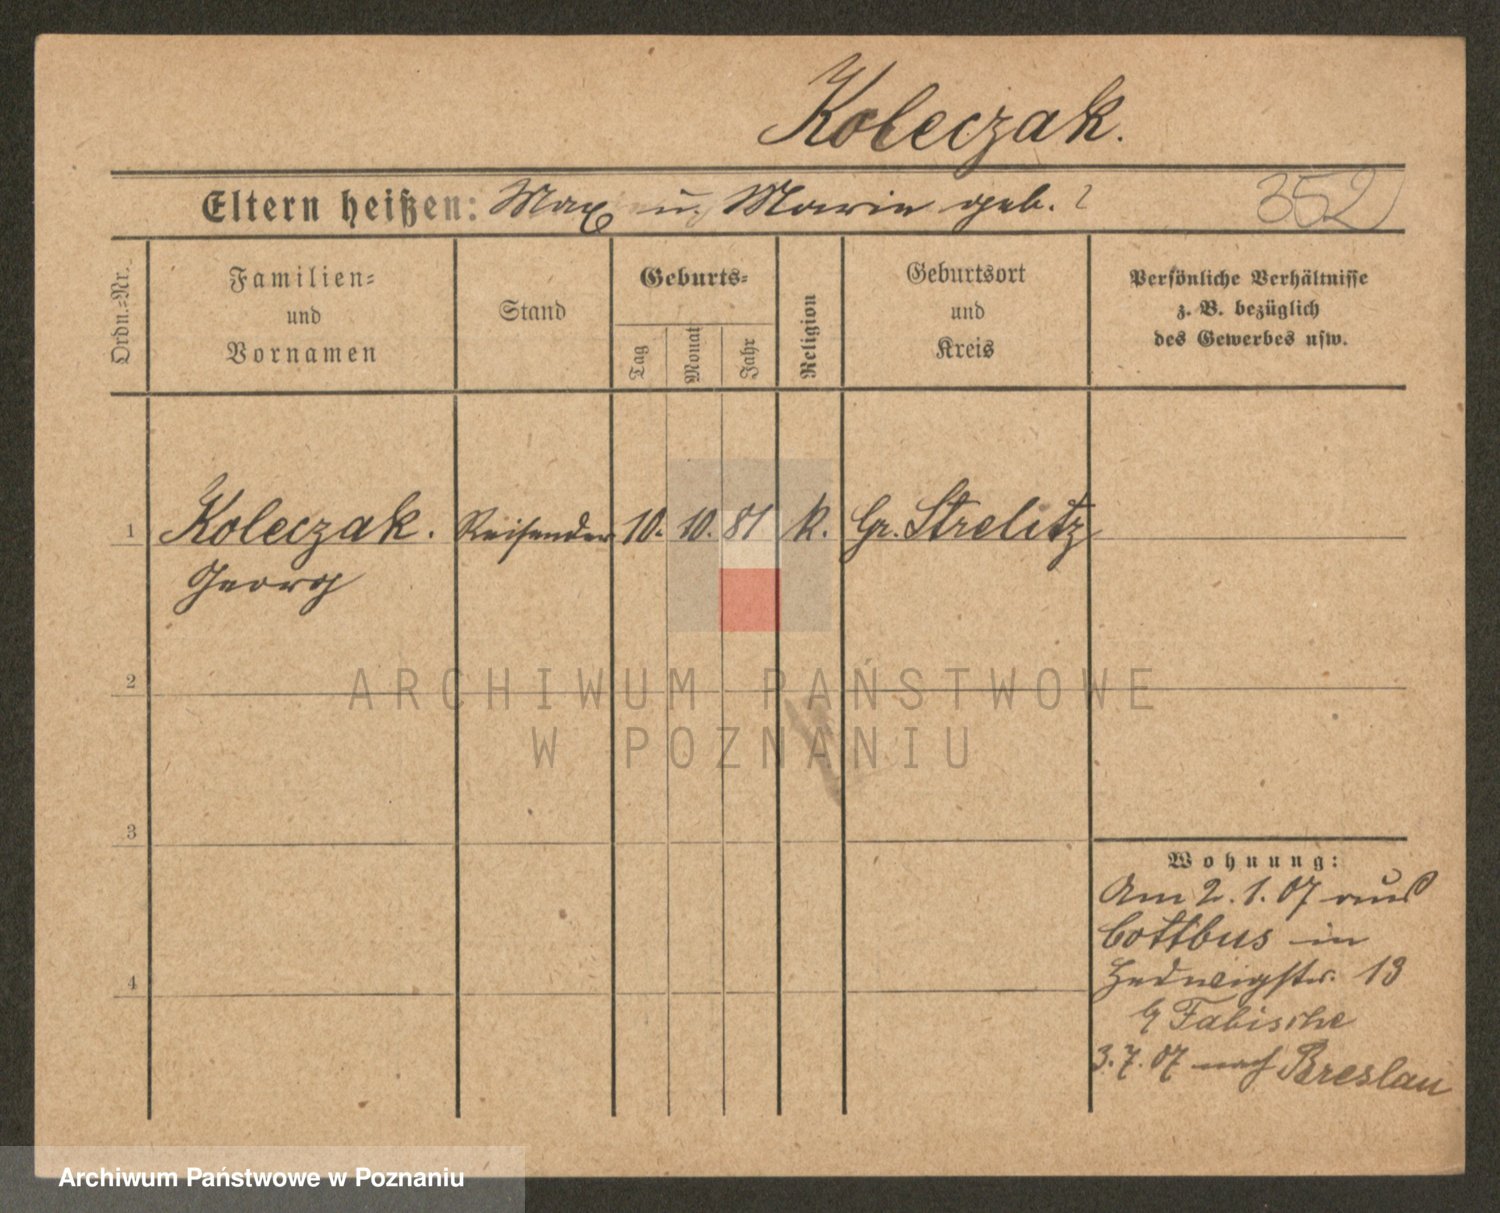 Koleczak.
Eltern heißen: Max u. Marie geb. ?
352
Ordn.=Nr.
Familien=
und
Vornamen
Stand
Geburts=
Tag
Monat
Jahr
Religion
Geburtsort
und
Kreis
Persönliche Verhältnisse
z. B. bezüglich
des Gewerbes usw.
1 Koleczak. Reisender 10. 10. 81 k. Gr. Strelitz
Georg
2
ARCHIWUM PAŃSTWOWE
W POZNANIU
3
Wohnung:
Am 2.1.07 aus
Cottbus in
Hedwigstr. 13
b/ Fabische
4
3.7.07 nach Breslau
Archiwum Państwowe w Poznaniu